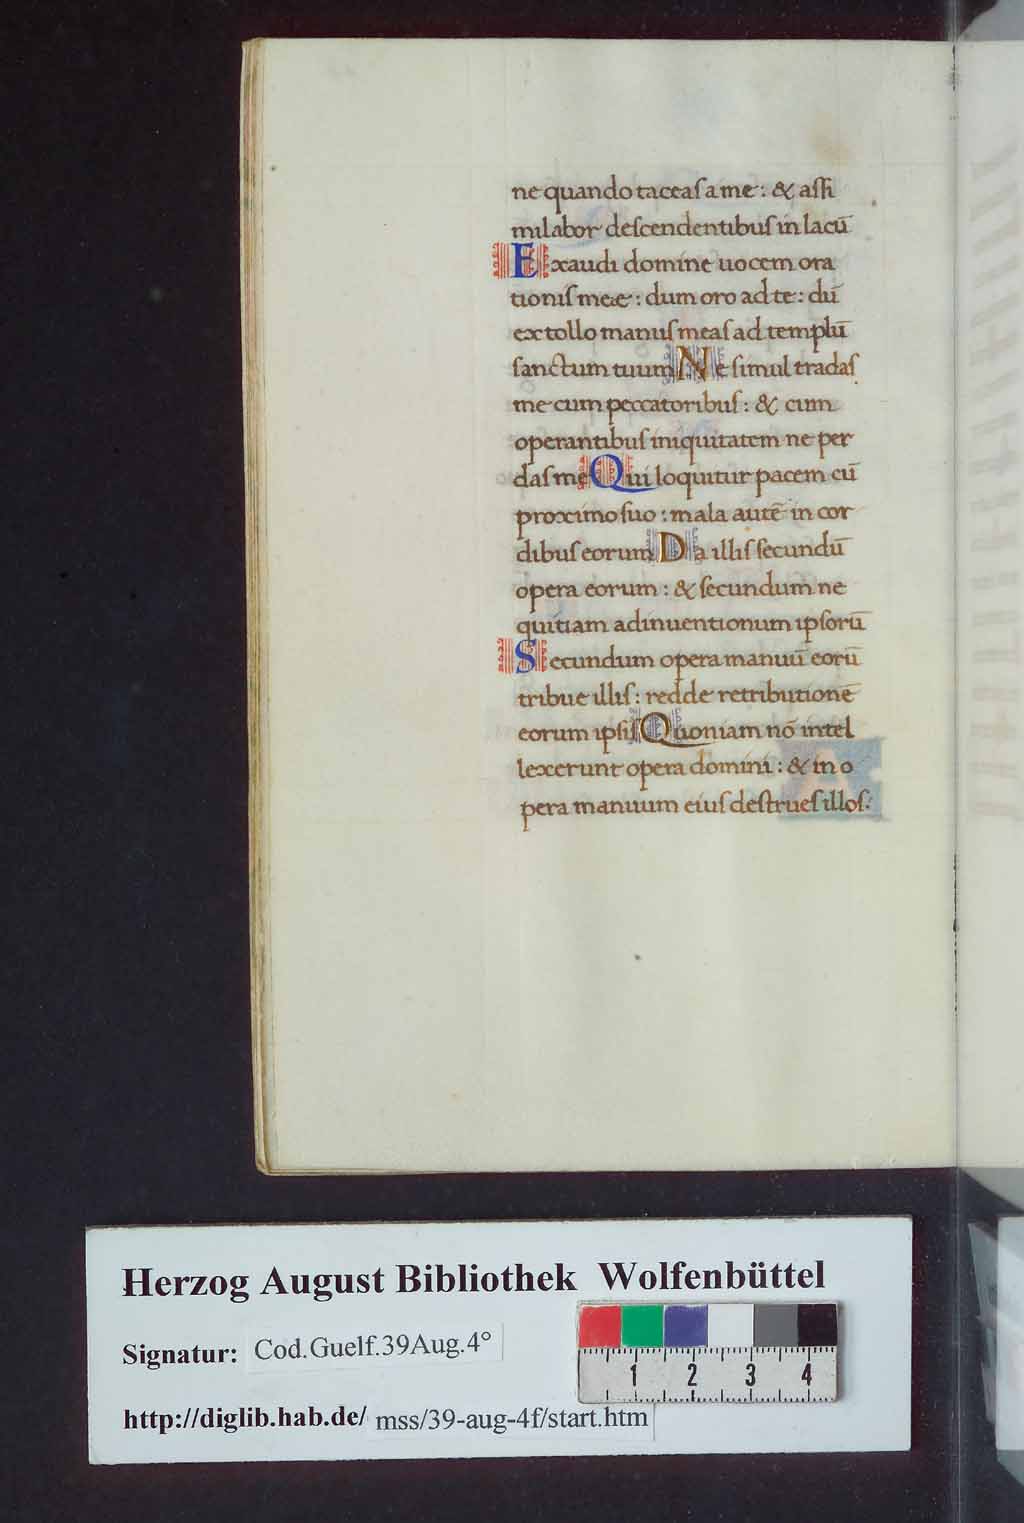 ne quando taceaſ a me : & aſſi
milabor deſcendentibuſ in lacū
Exaudi domine uocem ora
tioniſ meæ : dum oro ad te : dū
extollo manuſ meaſ ad templū
ſanctum tuum Ne ſimul tradaſ
me cum peccatoribuſ : & cum
operantibuſ iniquitatem ne per
daſ me Qui loquitur pacem cū
proximo ſuo : mala autē in cor
dibuſ eorum Da illiſ ſecundū
opera eorum : & ſecundum ne
quitiam adinuentionum ipſorū
Secundum opera manuū eorū
tribue illiſ : redde retributionē
eorum ipſiſ Quoniam nō intel
lexerunt opera domini : & in o
pera manuum eiuſ deſtrueſ illoſ :
Herzog August Bibliothek Wolfenbüttel
Signatur: Cod.Guelf.39Aug.4°
http://diglib.hab.de/ mss/39-aug-4f/start.htm
1 2 3 4